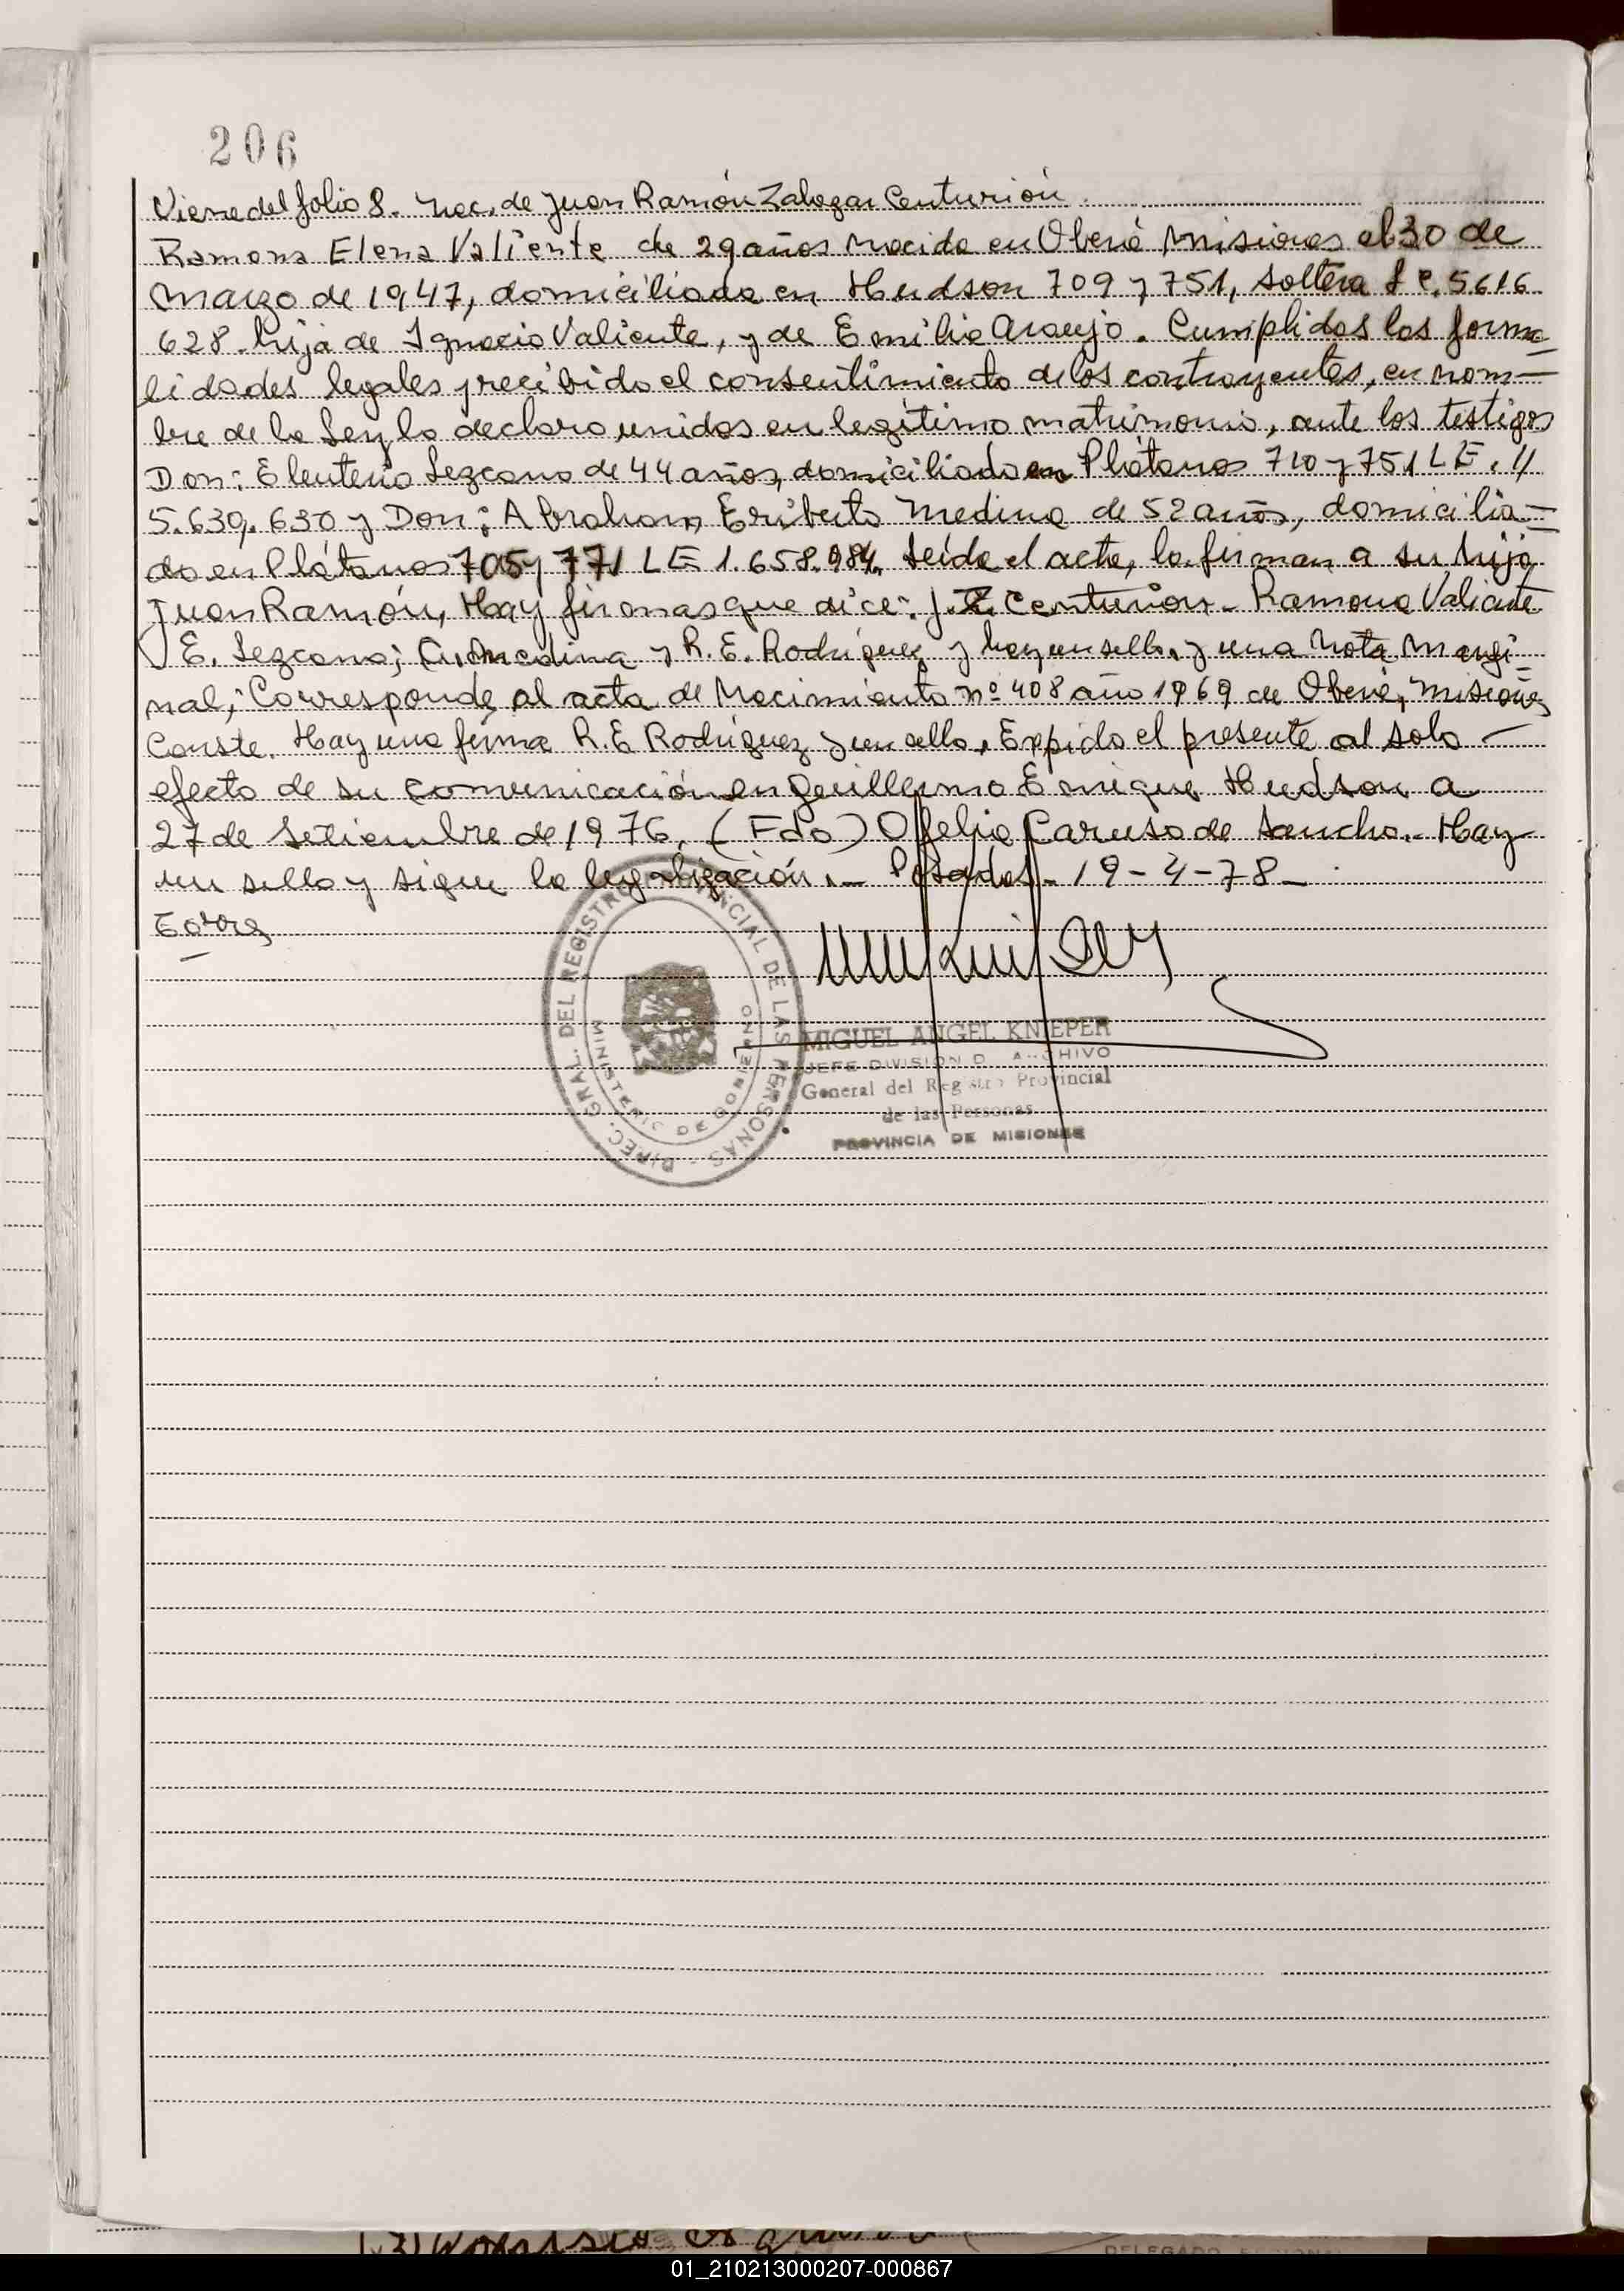 206
Viene del folio 8. Nac. de Juan Ramón Zalazar Centurión.
Ramona Elena Valiente de 29 años nacida en Oberá Misiones el 30 de
Marzo de 1947, domiciliada en Hudson 709 y 751, soltera L C. 5.616
628. hija de Ignacio Valiente, y de Emilia Araujo. Cumplidas las forma=
lidades legales y recibido el consentimiento de los contrayentes, en nom—
bre de la Ley lo declaro unidos en legítimo matrimonio, ante los testigos
Don: Eleuterio Lezcano de 44 años, domiciliado en Plátanos 710 y 751 L E. //
5.639.630 y Don: Abraham Eriberto Medina de 52 años, domicilia=
do en Plátanos 705 y 771 L E 1.658.984. Leída el acta, la firman a su hijo
Juan Ramón, Hay firmas que dice: J. Z. Centurion - Ramona Valiente
E. Lezcano; A. Medina y R. E. Rodríguez y hay un sello, y una Nota Margi=
nal; Corresponde al acta de Nacimiento nº 408 año 1969 de Oberá, Misiones
Conste. Hay una firma R. E Rodríguez y un sello, Expido el presente al solo —
efecto de su comunicación en Guillermo Enrique Hudson a
27 de Setiembre de 1976. (Fdo) Ofelia Caruso de Sancho.- Hay
un sello y sigue la legalización.— Posadas - 19-4-78-
DIREC. GRAL. DEL REGISTRO PROVINCIAL DE LAS PERSONAS -
MINISTERIO DE GOBIERNO
MIGUEL ANGEL KNIEPER
JEFE DIVISION D. ARCHIVO
General del Registro Provincial
de las Personas
PROVINCIA DE MISIONES
01_210213000207-000867